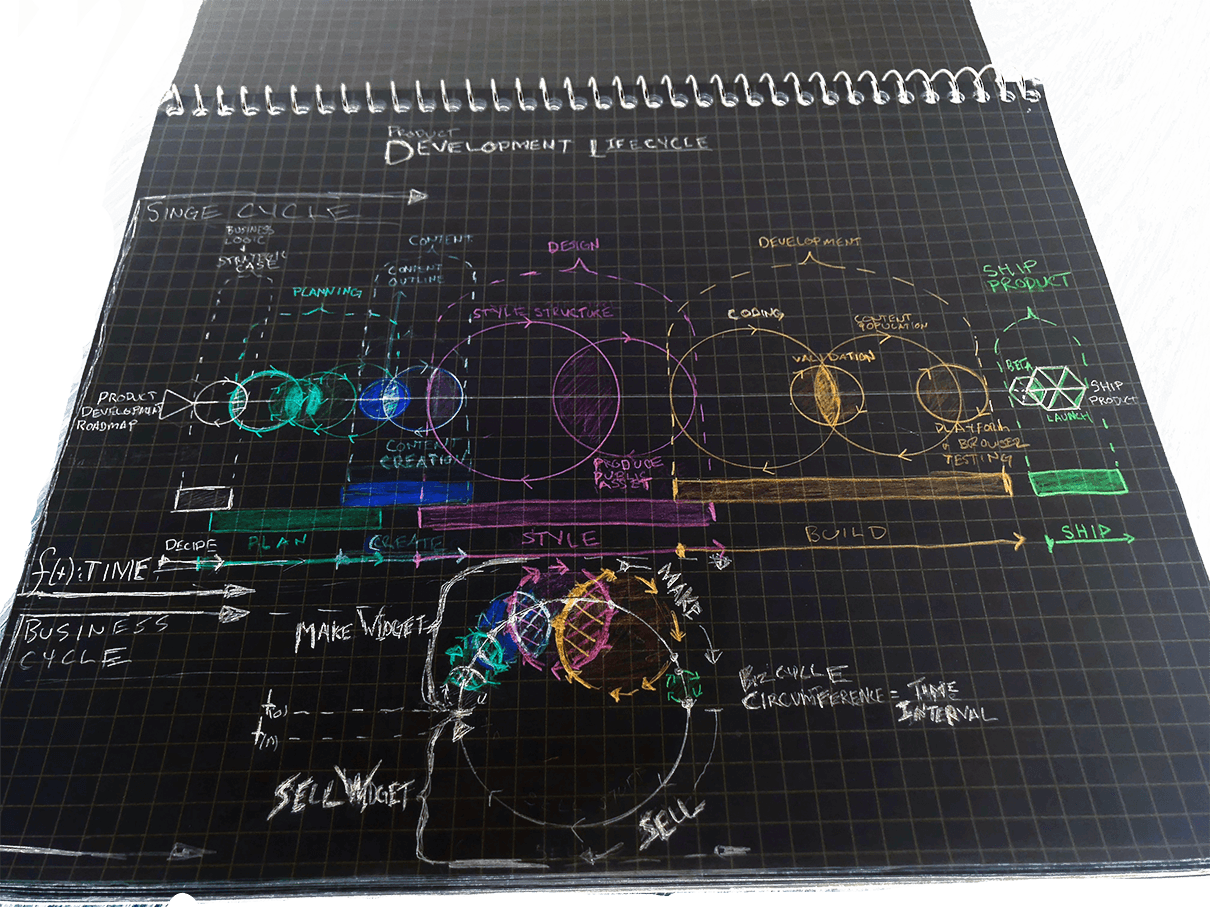 PRODUCT
DEVELOPMENT LIFECYCLE
SINGE CYCLE
BUSINESS
LOGIC
STRATEGIC
CASE
PLANNING
CONTENT
CONTENT
OUTLINE
DESIGN
STYLE STRUCTURE
DEVELOPMENT
CODING
CONTENT
POPULATION
VALIDATION
SHIP
PRODUCT
BETA
PRODUCT
DEVELOPMENT
ROADMAP
SHIP
PRODUCT
LAUNCH
CONTENT
CREATION
PRODUCE
PUBLIC
ASSET
PLATFORM
& BROWSER
TESTING
DECIDE
PLAN
CREATE
STYLE
BUILD
SHIP
f(t):TIME
BUSINESS
CYCLE
MAKE WIDGET
MAKE
BIZ CYCLE
CIRCUMFERENCE = TIME
INTERVAL
t(0)
t(n)
SELL WIDGET
SELL